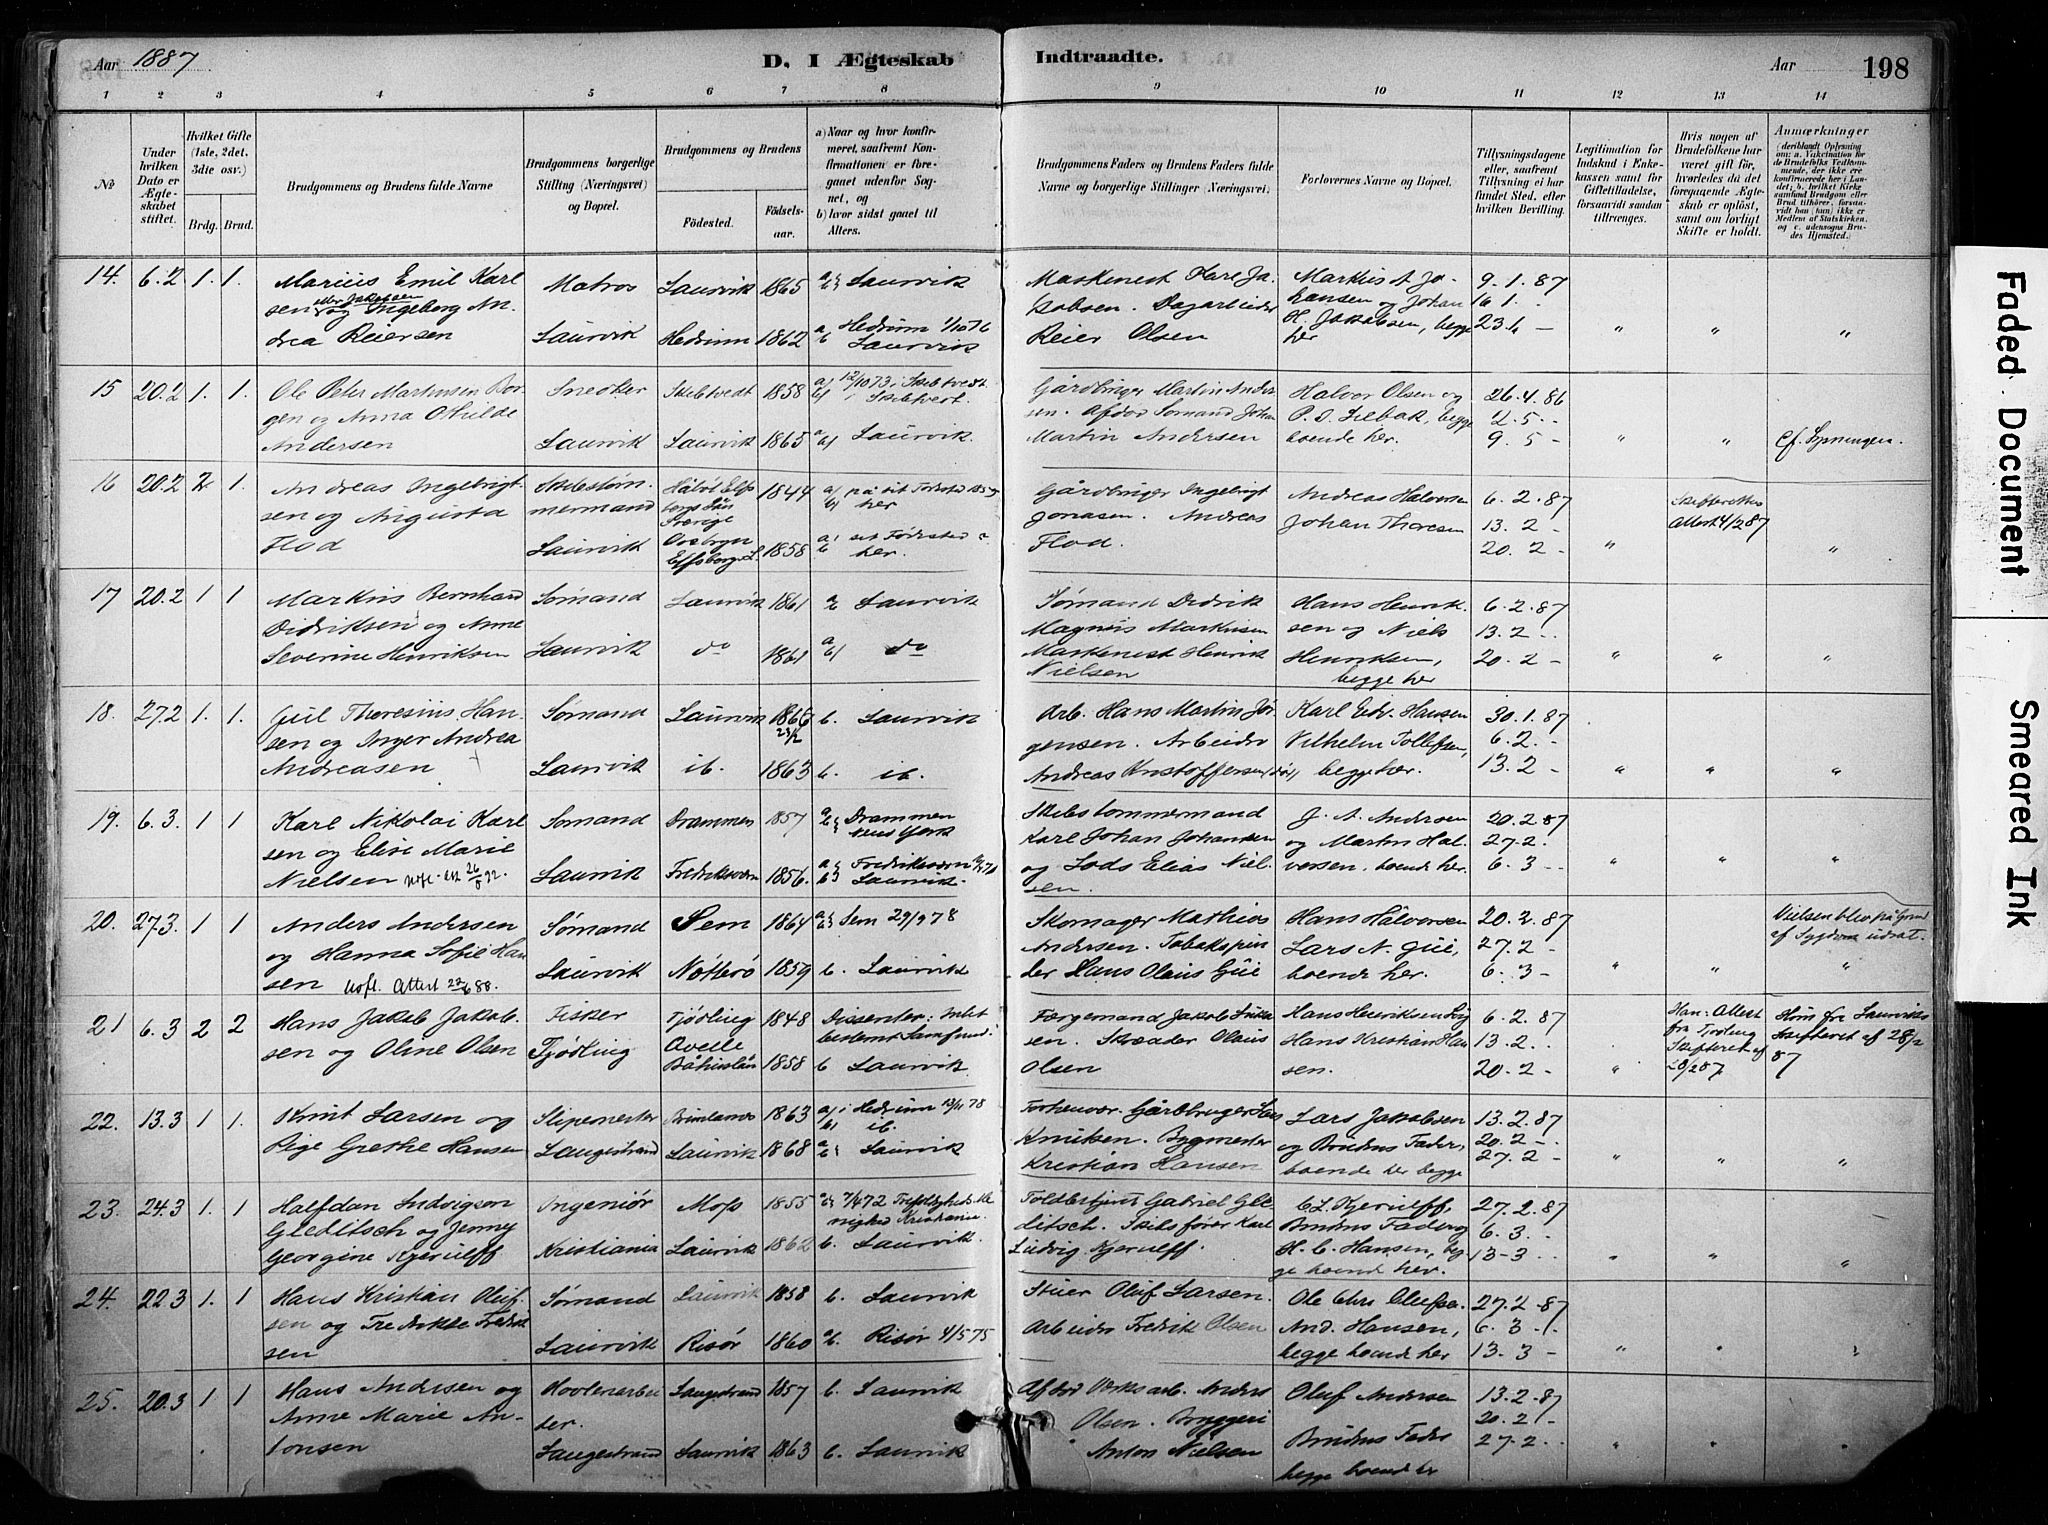 Aar 1887
D. I Ægteskab Indtraadte.
Aar 198
1 2 3 4 5 6 7 8 9 10 11 12 13 14
No
Under hvilken Dato er Ægteskabet stiftet.
Hvilket Gifte (1ste, 2det, 3die osv.)
Brdg. Brud.
Brudgommens og Brudens fulde Navne
Brudgommens borgerlige Stilling (Næringsvei) og Bopæl.
Brudgommens og Brudens
Födested. Födselsaar.
a) Naar og hvor konfirmeret, saafremt Konfirmationen er foregaaet udenfor Sognet, og
b) hvor sidst gaaet til Alters.
Brudgommens Faders og Brudens Faders fulde Navne og borgerlige Stillinger (Næringsvei).
Forlovernes Navne og Bopæl.
Tillysningsdagene eller, saafremt Tillysning ei har fundet Sted, efter hvilken Bevilling.
Legitimation for Indskud i Enkekassen samt for Giftetilladelse, forsaavidt saadan tiltrænges.
Hvis nogen af Brudefolkene har været gift før, hvorledes da det foregaaende Ægteskab er opløst, samt om lovligt Skifte er holdt.
Anmærkninger (deriblandt Oplysning om: a. Vakcination for de Brudefolks Vedkommende, der ikke ere konfirmerede her i Landet; b. hvilket Kirkesamfund Brudgom eller Brud tilhører, forsaavidt han (hun) ikke er Medlem af Statskirken, og c. udensogns Brudes Hjemsted.)
14. 6.2 1. 1. Marius Emil Karlsen og Ingeborg Andrea Reiersen
Matros Laurvik
Laurvik 1865 Laurvik
Hedrum 1862 a Hedrum 1/10 76 b Laurvik
Maskenest Karl Jakobsen. Dagarbeider Reier Olsen
Markus A. Johansen og Johan H. Jakobsen, begge her
9.1.87 16 1. 23.1 -
15 20.2 1. 1. Ole Peter Martinsen Borgen og Anna Othilde Andersen
Snedker Laurvik
Skibtvedt 1858 12/10 73 i Skibtvedt.
Laurvik 1865 Laurvik.
Gårdbruger Martin Andersen. Afdød Sømand Johan Martin Andersen
Halvor Olsen og P. O. Lilbak, begge boende her.
26.4.86 2.5. 9.5 -
cf. Lysningen.
16 20.2 2 1. Andreas Ingebrigtsen og Augusta Flod
Skibstømmermand Laurvik
Sverige 1844 her
Elfsborg L. 1858 her.
Gårdbruger Ingebrigt Jonasen. Andreas Flod.
Andreas Halvorsen Johan Thoresen
6.2.87 13.2 - 20.2 -
Attest 4/2 87
17 20.2 1 1 Markus Bernhard Didriksen og Anne Severine Henriksen
Sømand Laurvik
Laurvik 1861 Laurvik
do 1861 do
Sømand Didrik Magnus Markusen Maskenest Henrik Nielsen
Hans Henriksen og Niels Henriksen, begge her
6.2.87 13.2 - 20.2 -
18. 27.2 1. 1. Juel Thoresius Hansen og Inger Andrea Andreasen
Sømand Laurvik
Laurvik 1865 b. Laurvik
ib. 1863 b. ib.
Arb. Hans Martin Jørgensen. Arbeider Andreas Kristoffersen
Karl Edv. Hansen Vilhelm Tollefsen, begge her.
30.1.87 6.2. - 13.2 -
19. 6.3. 1 1 Karl Nikolai Karlsen og Elise Marie Nielsen
Sømand Laurvik
Drammen 1857 Drammen New York
Fredriksværn 1856. Fredriksværn Laurvik.
Skibstømmermand Karl Johan Johansen og Lods Elias Nielsen.
J. A. Andersen og Martin Halvorsen, boende her.
20.2.87 27.2. 6.3 -
20. 27.3. 1 1 Anders Andersen og Hanna Sofie Hansen
Sømand Laurvik
Sem 1864 Sem 29/9 78
Nøtterø 1859 b. Laurvik
Skomager Mathias Andersen. Tobakspinder Hans Olaus Gue
Hans Halvorsen Lars N. Gue, boende her.
20.2.87 27.2 - 6.3 -
Nielsen blev på Grund af Sygdom udsat.
21 6.3 2 2 Hans Jakob Jakobsen og Oline Olsen
Fisker Tjødling
Tjødling 1848 Dissenter: Intet bestemt Samfund.
Båhuslän 1858 b Laurvik
Færgemand Jakob. Skræder Olaus Olsen
Hans Henriksen Hans Kristian Hansen.
6.2.87 13.2. 20.2 -
Han: Attest fra Tjødling Skifteret af
Hun fra Laurviks Skifteret af 28/2 87
22. 13.3 1 1. Knut Larsen og Pige Grethe Hansen
Slipemester Langestrand
Brunlanæs 1863 i Hedrum 13/11 78 ib.
Laurvik 1868 Laurvik
Forhenvær. Gårdbruger Lars Knutsen. Bygmester Kristian Hansen
Lars Jakobsen og Brudens Fader, boende her begge
13.2.87 20.2 - 27.2 -
23. 24.3 1. 1 Halfdan Ludvigson Gleditsch og Jenny Georgine Kjerulff
Ingeniør Kristiania
Moss 1855 Trefoldigheds Menighed Kristiania.
Laurvik 1862 b. Laurvik.
Toldbetjent Gabriel Gleditsch. Skibsfører Karl Ludvig Kjerulff.
C. L. Kjerulff, Brudens Fader og H. C. Hansen, begge boende her.
27.2.87 6.3. 13-3 -
24. 22.3 1. 1 Hans Kristian Olufsen og Fredrikke Fredriksen
Sømand Laurvik
Laurvik 1858 b. Laurvik
Risør 1860 Risør 4/5 75
Stuer Oluf Larsen. Arbeider Fredrik Olsen
Ole Chr. Olufsen And. Hansen, begge boende her
27.2.87 6.3 - 13.3 -
25. 20.3 1 1 Hans Andersen og Anne Marie Antonsen
Hovlenarbeider. Langestrand
Langestrand 1857 b. Laurvik
Laurvik 1863 b. Laurvik
Afdød Værksarb. Anders Olsen. Bryggeri Anton Nielsen
Oluf Andersen Brudens Fader begge boende her
13.2.87 20.2 - 27.2 -
Faded Document
Smeared Ink